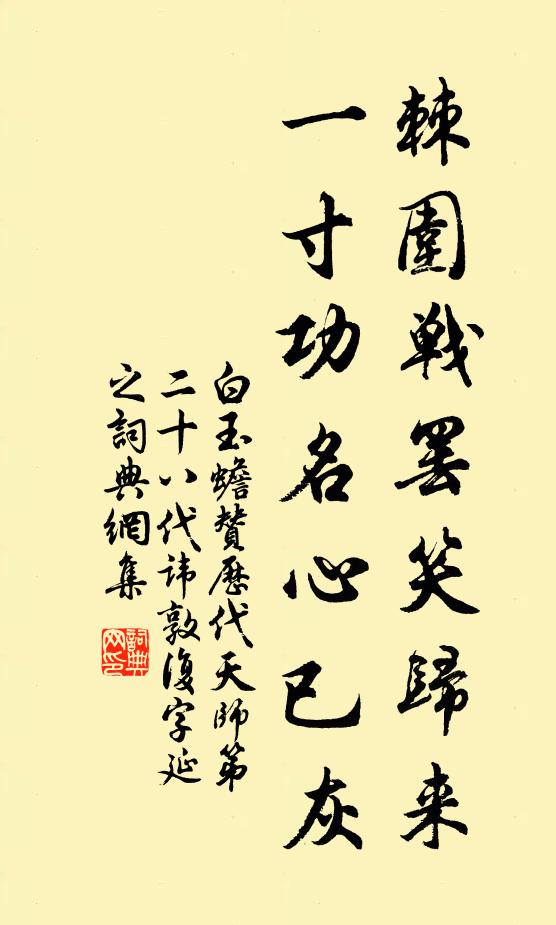 棘圍戰罷笑歸来
一寸功名心已灰
白玉蟾贊歷代天師第
二十八代諱敦復字延
之詞典網集
詞典
网印